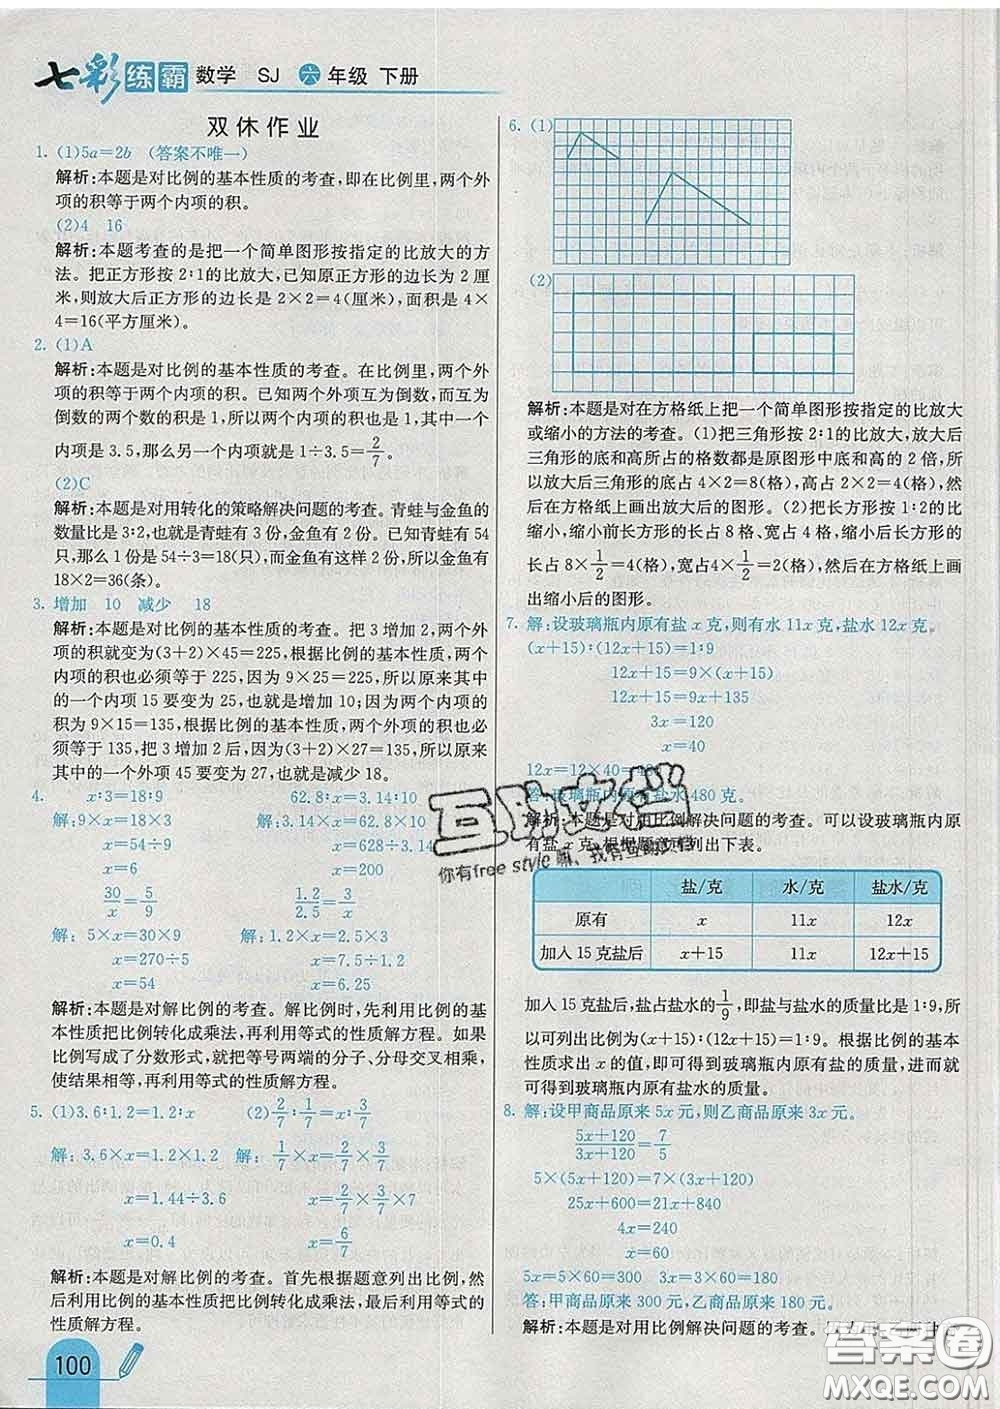 七彩练霸 数学 SJ 六年级 下册
双休作业
1. (1)5a=2b (答案不唯一)
解析:本题是对比例的基本性质的考查,即在比例里,两个外
项的积等于两个内项的积。
(2)4 16
解析:本题考查的是把一个简单图形按指定的比放大的方
法。把正方形按 2∶1的比放大,已知原正方形的边长为 2 厘
米,则放大后正方形的边长是 2×2=4(厘米),面积是 4×
4=16(平方厘米)。
2. (1)A
解析:本题是对比例的基本性质的考查。在比例里,两个外
项的积等于两个内项的积。已知两个外项互为倒数,而互为
倒数的两个数的积是 1,所以两个内项的积也是 1,其中一个
内项是 3.5,那么另一个内项就是 1÷3.5=2/7。
(2)C
解析:本题是对用转化的策略解决问题的考查。青蛙与金鱼的
数量比是 3∶2,也就是青蛙有 3 份,金鱼有 2 份。已知青蛙有 54
只,那么 1 份是 54÷3=18(只),而金鱼有这样 2 份,金鱼有
18×2=36(条)。
3. 增加 10 减少 18
解析:本题是对比例的基本性质的考查。把 3 增加 2,两个外
项的积就变为(3+2)×45=225,根据比例的基本性质,两个
内项的积也必须等于 225,因为 25×9=225,所以原来其中
的一个内项 15 要变为 25,也就是增加 10;因为两个内项的
积为 9×15=135,根据比例的基本性质,两个外项的积也必
须等于 135,把 3 增加 2 后,因为(3+2)×27=135,所以原来
其中的一个外项 45 要变为 27,也就是减少 18。
4. x∶3=18∶9 62.8∶x=3.14∶10
解:9×x=3×18 解:3.14×x=62.8×10
x=54÷9 x=628÷3.14
x=6 x=200
30/x=5/9 1.2/2.5=3/x
解:5×x=30×9 解:1.2×x=2.5×3
x=270÷5 x=7.5÷1.2
x=54 x=6.25
解析:本题是对解比例的考查。解比例时,先利用比例的基
本性质把比例转化成乘法,再利用等式的性质解方程。如果
比例写成了分数形式,就把等号两端的分子、分母交叉相乘,
使结果相等,再利用等式的性质解方程。
5. (1)3.6∶1.2=1.2∶x (2)2/7∶1/7=x∶3/7
解:3.6×x=1.2×1.2 解:1/7×x=2/7×3/7
x=1.44÷3.6 x=2/7×3/7×7
x=0.4 x=6/7
解析:本题是对解比例的考查。首先根据题意列出比例,然
后利用比例的基本性质把比例转化成乘法,最后利用等式的
性质解方程。
100
6. (1)
(2)
解析:本题是对在方格纸上把一个简单图形按指定的比放大
或缩小的方法的考查。(1)把三角形按 2∶1的比放大,放大后
三角形的底和高所占的格数都是原图形中底和高的 2 倍,所
以放大后三角形的底占 4×2=8(格),高占 2×2=4(格),然
后在方格纸上画出放大后的图形。(2)把长方形按 1∶2的比
缩小,缩小前长方形的长占 8 格、宽占 4 格,缩小后长方形的
长占8×1/2=4(格),宽占4×1/2=2(格),然后在方格纸上画
出缩小后的图形。
7. 解:设玻璃瓶内原有盐 x 克,则有水 11x 克,盐水 12x 克。
(x+15)∶(12x+15)=1∶9
12x+15=9×(x+15)
12x+15=9x+135
3x=120
x=40
12x=12×40=480
答:玻璃瓶内原有盐水 480 克。
解析:本题是对用比例解决问题的考查。可以设玻璃瓶内原
有盐 x 克,根据题意列出下表。
盐/克 水/克 盐水/克
原有 x 11x 12x
加入 15 克盐后 x+15 11x 12x+15
加入 15 克盐后,盐占盐水的1/9,即盐与盐水的质量比是 1∶9,所
以可列出比例为(x+15)∶(12x+15)=1∶9。根据比例的基本
性质求出 x 的值,即可得到玻璃瓶内原有盐的质量,进而就
可得到玻璃瓶内原有盐水的质量。
8. 解:设甲商品原来 5x 元,则乙商品原来 3x 元。
(5x+120)/(3x+120)=7/5
5×(5x+120)=7×(3x+120)
25x+600=21x+840
4x=240
x=60
5x=5×60=300 3x=3×60=180
答:甲商品原来 300 元,乙商品原来 180 元。
解析:本题是对用比例解决问题的考查。
互助文档
你有free style嘛、我有互助文档
答案圈
MXQE.COM